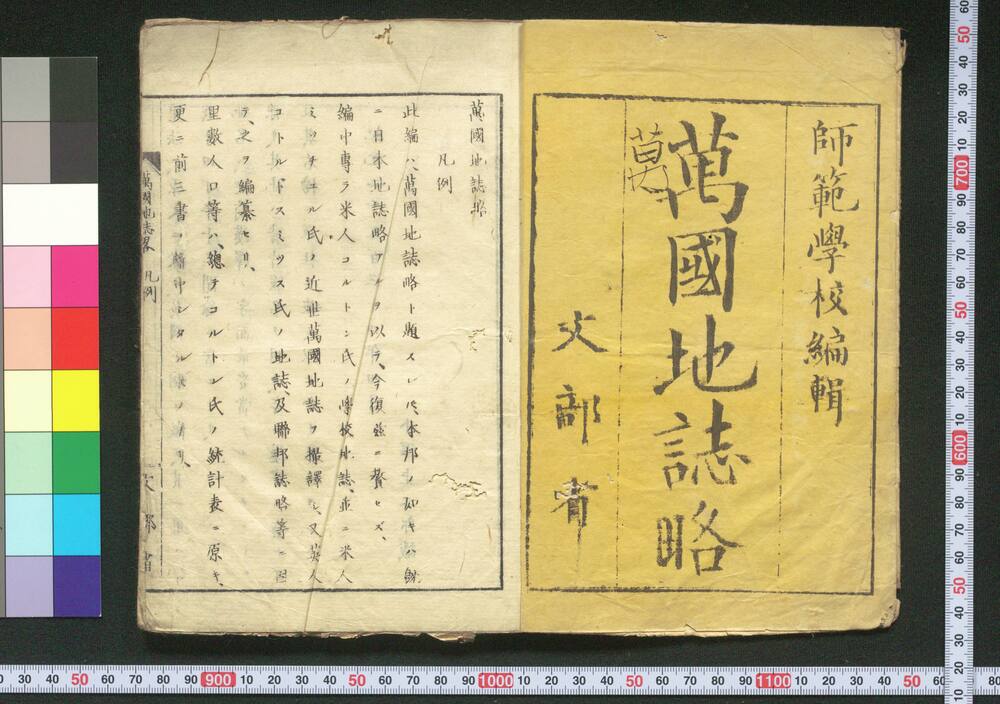 師範學校編輯
萬國地誌略
文部省
萬國地誌畧
凡例
此編ハ萬國地誌略ト題スレバ本邦ノ如キハ
ニ日本地誌略アルヲ以テ今復茲ニ贅セズ
編中專ラ米人コルトン氏ノ學校地誌並ニ米人
ミッチェル氏ノ近世萬國地誌ヲ撮譯シ又英人
コトルド スミッス氏ノ地誌及聯邦誌略等ニ因
テ之ヲ編纂セリ
里數人口等ハ總テコルトン氏ノ統計表ニ原キ
更ニ前三書
萬國地誌畧 凡例
文部省